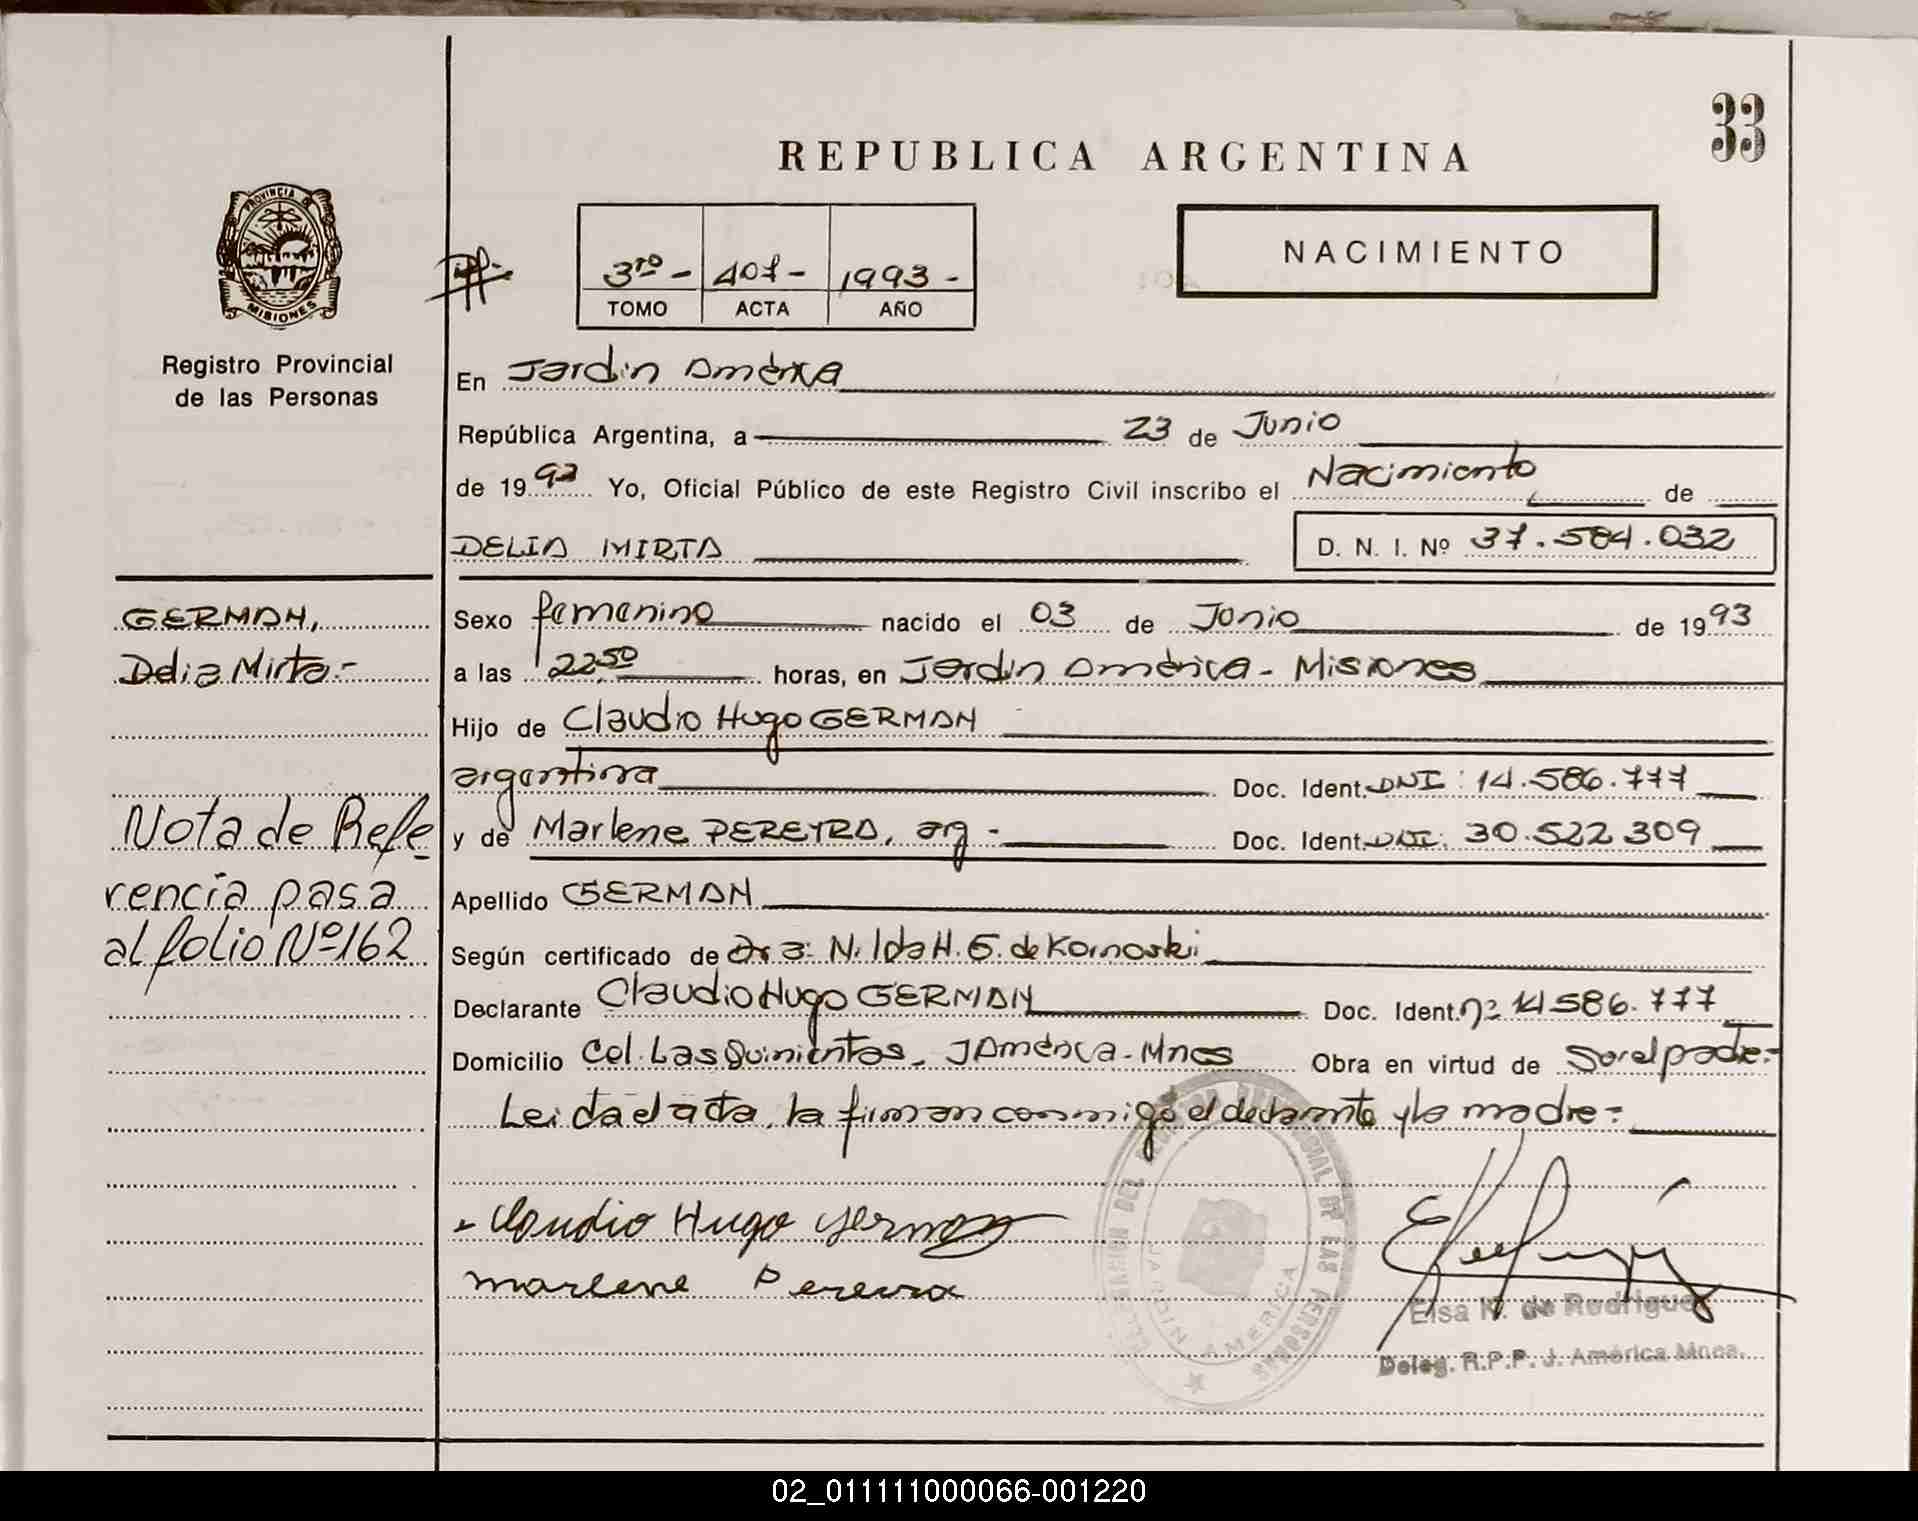 33
REPUBLICA ARGENTINA
PROVINCIA DE
MISIONES
Registro Provincial
de las Personas
3ro - 407 - 1993 -
TOMO ACTA AÑO
NACIMIENTO
En Jardin América
República Argentina, a 23 de Junio
de 1993 Yo, Oficial Público de este Registro Civil inscribo el Nacimiento de
DELIA MIRTA D. N. I. Nº 37.584.032
GERMAN,
Delia Mirta.-
Sexo femenino nacido el 03 de Junio de 1993
a las 22,50 horas, en Jardin América - Misiones
Hijo de Claudio Hugo GERMAN
argentina Doc. Ident. DNI: 14.586.777
y de Marlene PEREYRA, arg.- Doc. Ident. DNI: 30.522.309
Nota de Refe
rencia pasa
al folio Nº 162
Apellido GERMAN
Según certificado de Dra: Nilda H. G. de Kornoski
Declarante Claudio Hugo GERMAN Doc. Ident. nº 14 586.777
Domicilio Col. Las Quinientas, J América - Mnes Obra en virtud de Ser el padre.-
Leida el acta, la firman conmigo el declarante y la madre =
Claudio Hugo German
Marlene Pereira
DELEGACION DEL REGISTRO PROVINCIAL DE LAS PERSONAS
JARDIN AMERICA
Elsa K. de Rodriguez
Deleg. R.P.P. J. América Mnes.
02_011111000066-001220